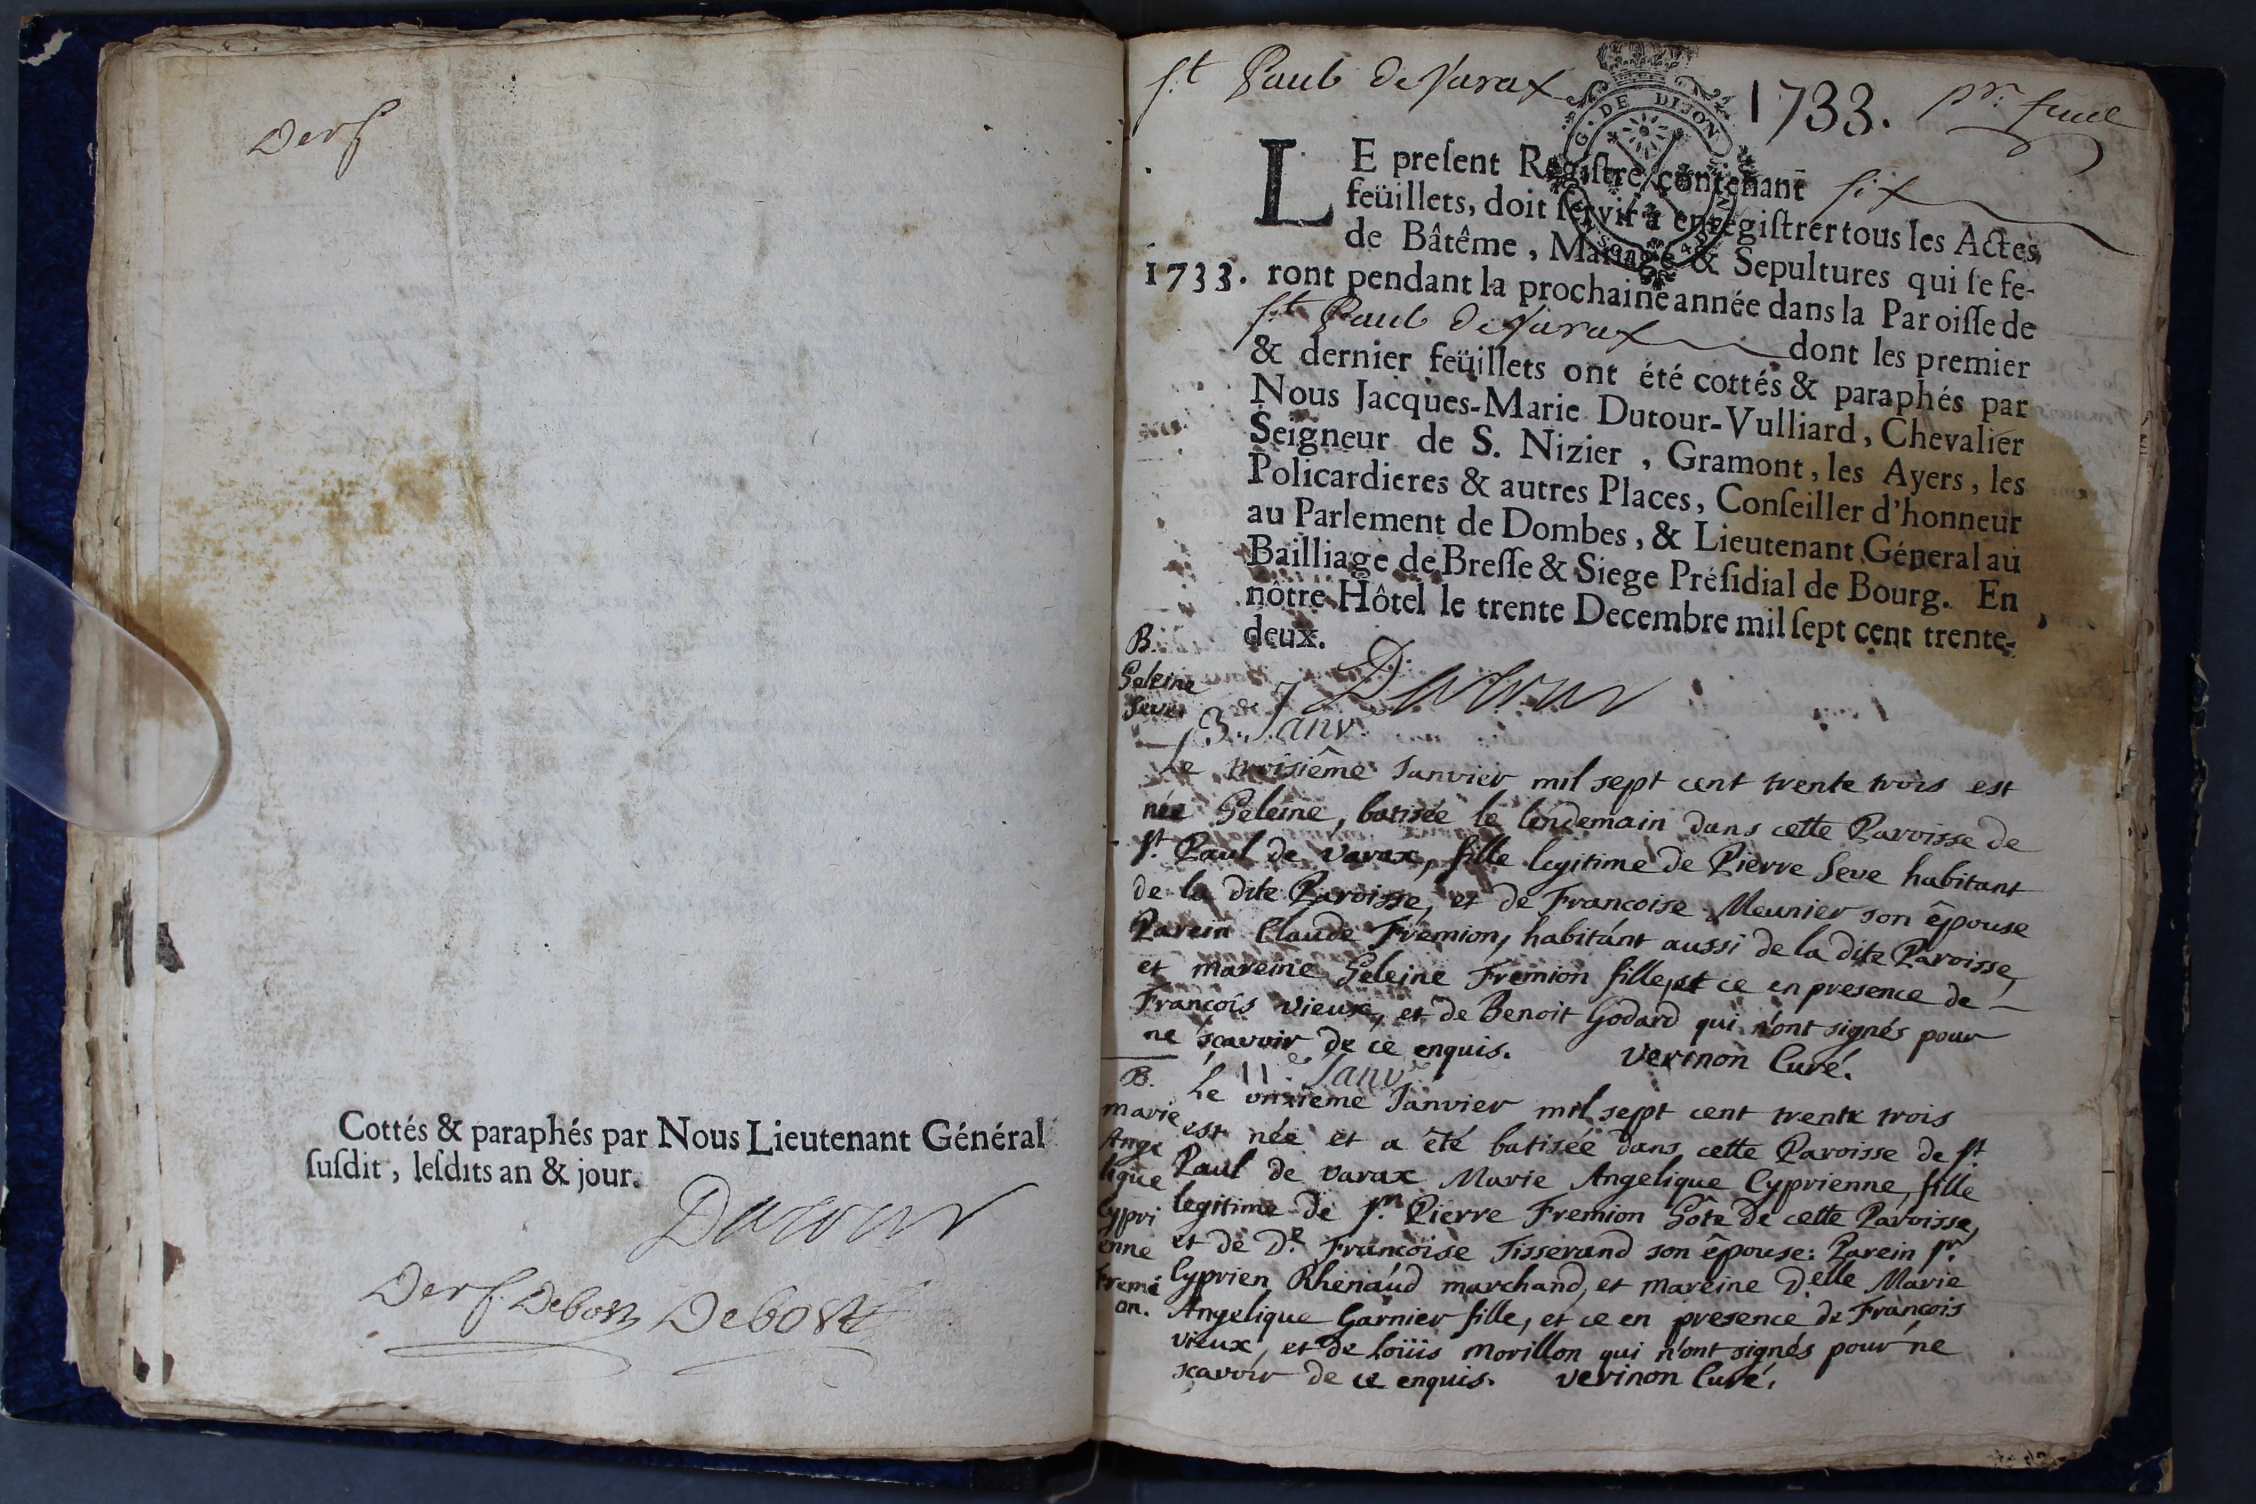 Derf
Cottés & paraphés par Nous Lieutenant Général
ſuſdit, leſdits an & jour.
Dutour
Derf. Debost Debost
St Paul de Varax 1733. pr. feuil
G. DE DIJON
LE preſent Regiſtre contenant six
feüillets, doit ſervir à enregiſtrer tous les Actes
de Bâtême, Mariage & Sepultures qui ſe fe-
1733. ront pendant la prochaine année dans la Paroiſſe de
St Paul de Varax dont les premier
& dernier feüillets ont été cottés & paraphés par
Nous Jacques-Marie Dutour-Vulliard, Chevalier
Seigneur de S. Nizier, Gramont, les Ayers, les
Policardieres & autres Places, Conſeiller d'honneur
au Parlement de Dombes, & Lieutenant Géneral au
Bailliage de Breſſe & Siege Préſidial de Bourg. En
nôtre Hôtel le trente Decembre mil ſept cent trente-
deux.
Dutour
B.
Geleine
Seve
3e Janv.
Le troisiême Janvier mil sept cent trente trois est
née Geleine, batisée le lendemain dans cette Paroisse de
St. Paul de varax, fille legitime de Pierre Seve habitant
de la dite Paroisse, et de Francoise Meunier son êpouse
Parein Claude Fremion, habitant aussi de la dite Paroisse,
et mareine Geleine Fremion fille, et ce en presence de
François vieux, et de Benoit Godard qui n'ont signés pour
ne scavoir de ce enquis. verinon Curé.
B.
marie
Ange
lique
Cypri
enne
Fremi
on.
11e Janv.
Le onzieme Janvier mil sept cent trente trois
est née et a êté batisée dans cette Paroisse de St
Paul de varax Marie Angelique Cyprienne, fille
legitime de Sr. Pierre Fremion Hôte de cette Paroisse,
et de De. Francoise Tisserand son êpouse: Parein Sr.
Cyprien Rhenaud marchand, et mareine Delle Marie
Angelique Garnier fille, et ce en presence de François
vieux, et de Loüis morillon qui n'ont signés pour ne
scavoir de ce enquis. verinon Curé.